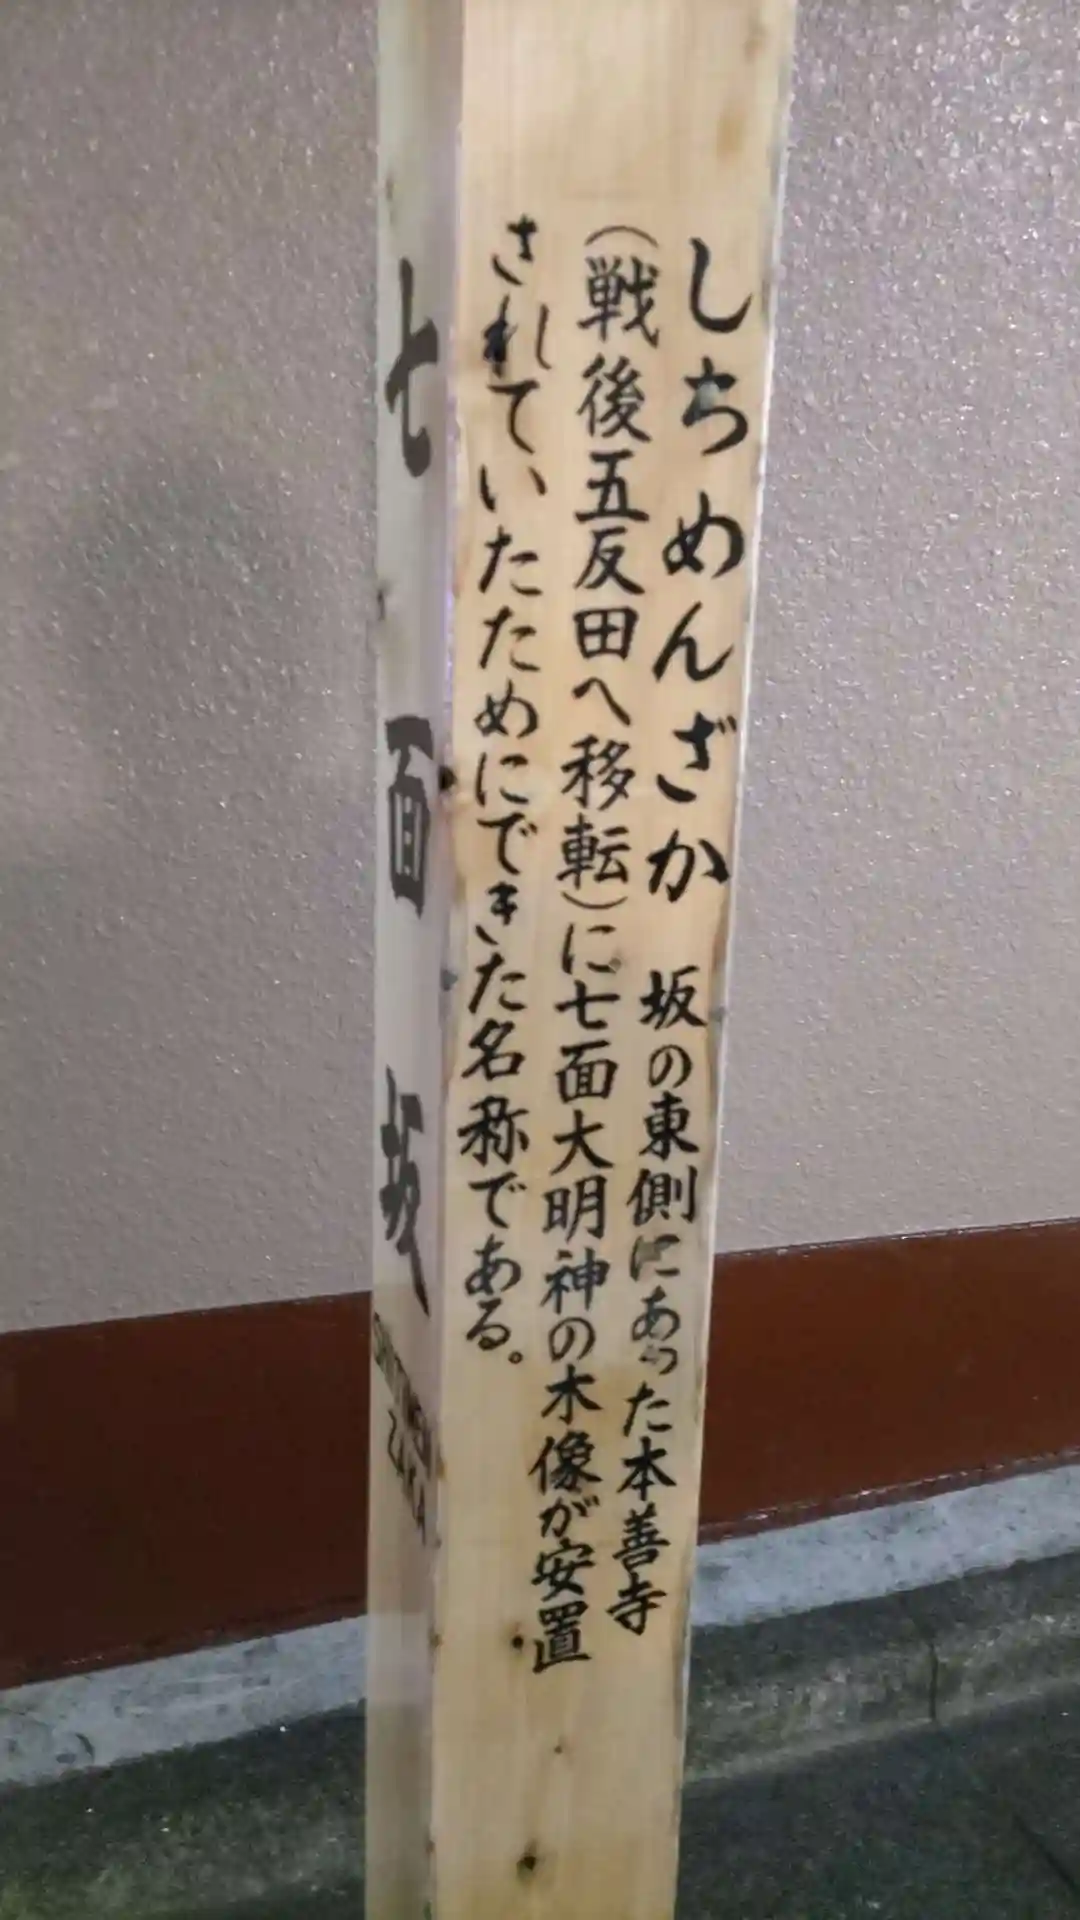 しちめんざか 坂の東側にあった本善寺
(戦後五反田へ移転)に七面大明神の木像が安置
されていたためにできた名称である。
七面坂
SHICHIMEN
ZAKA